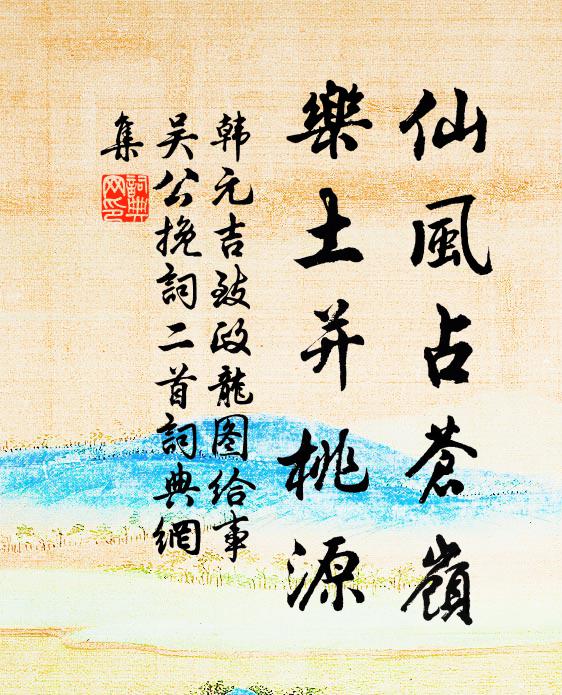 仙風占蒼嶺
樂土并桃源
韩元吉致政龍图给事
吴公挽詞二首詞典網
集
詞典
网印